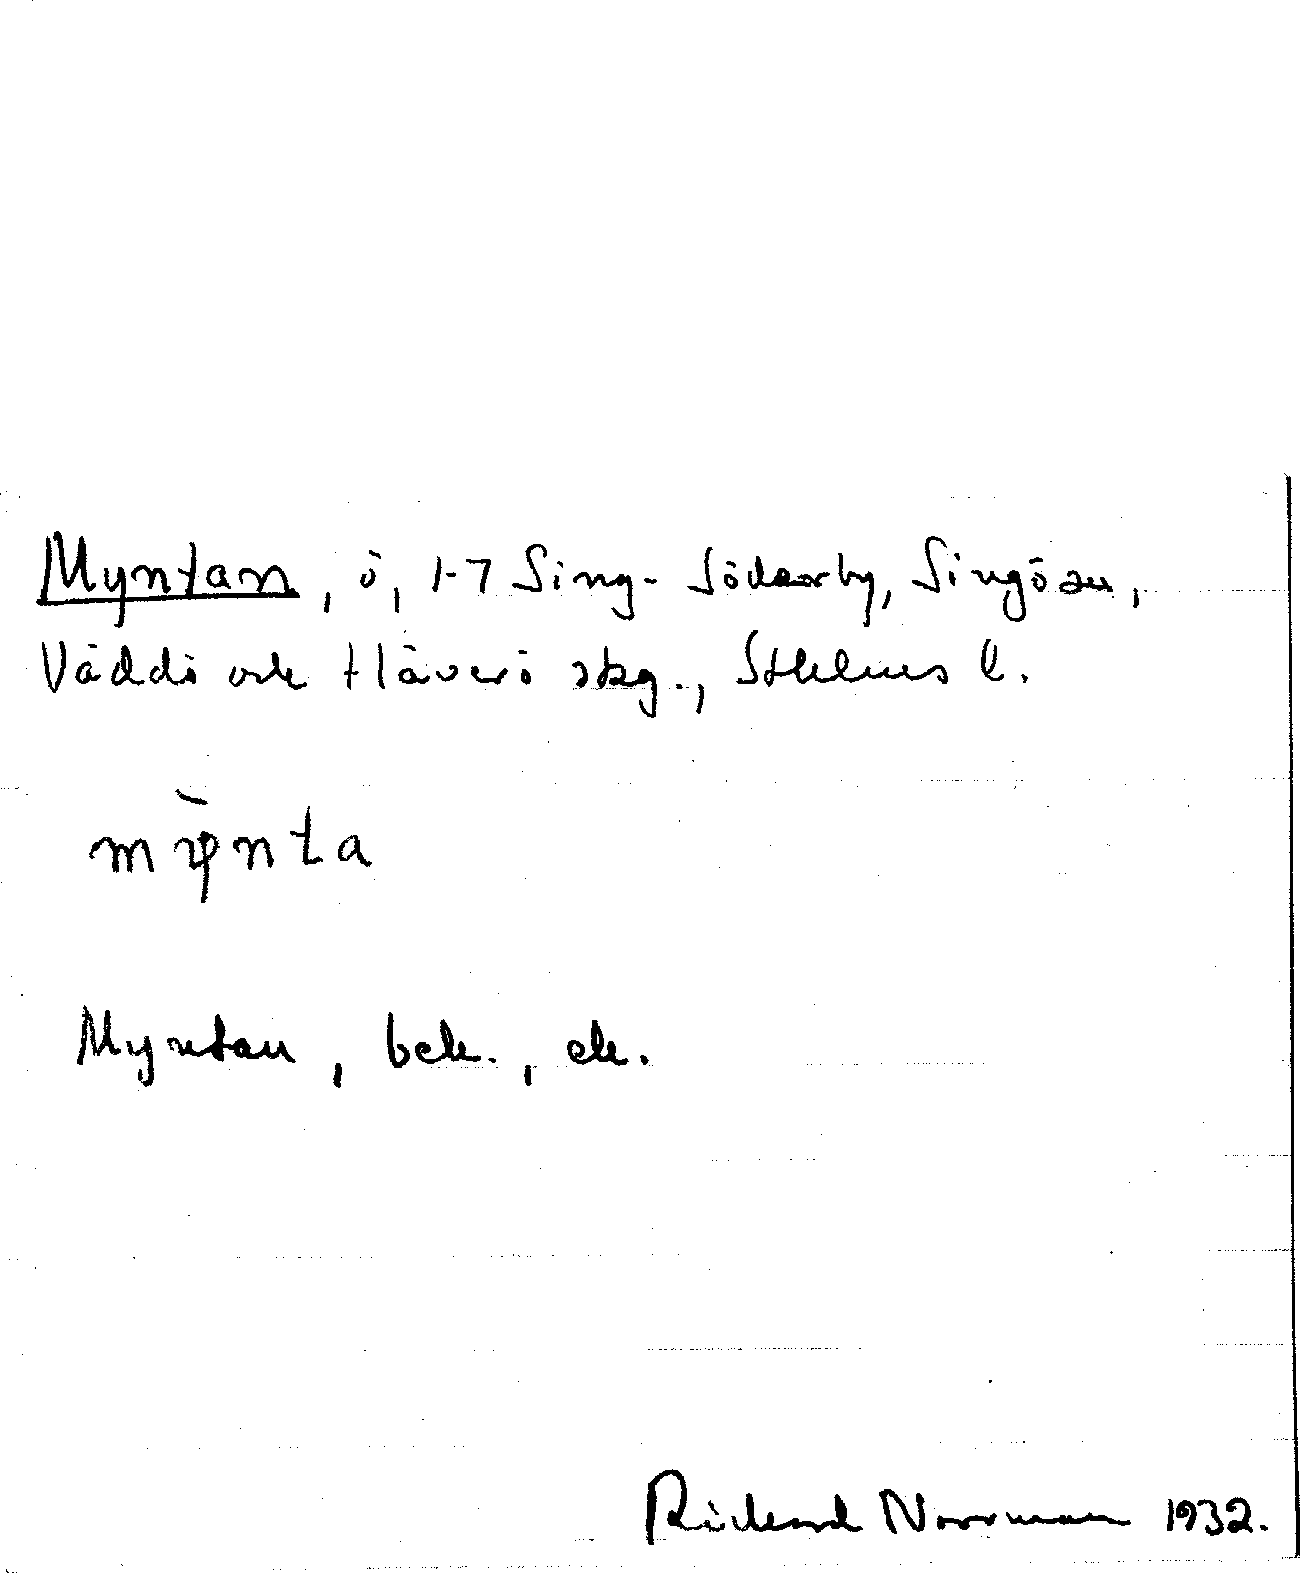 Myntan, ö, 1-7 Sing-Söderby, Singö sn,
Väddö och Häverö skg., Sthlms l.
mỳnta
Myntan, bek., ek.
Rickard Norrman 1932.